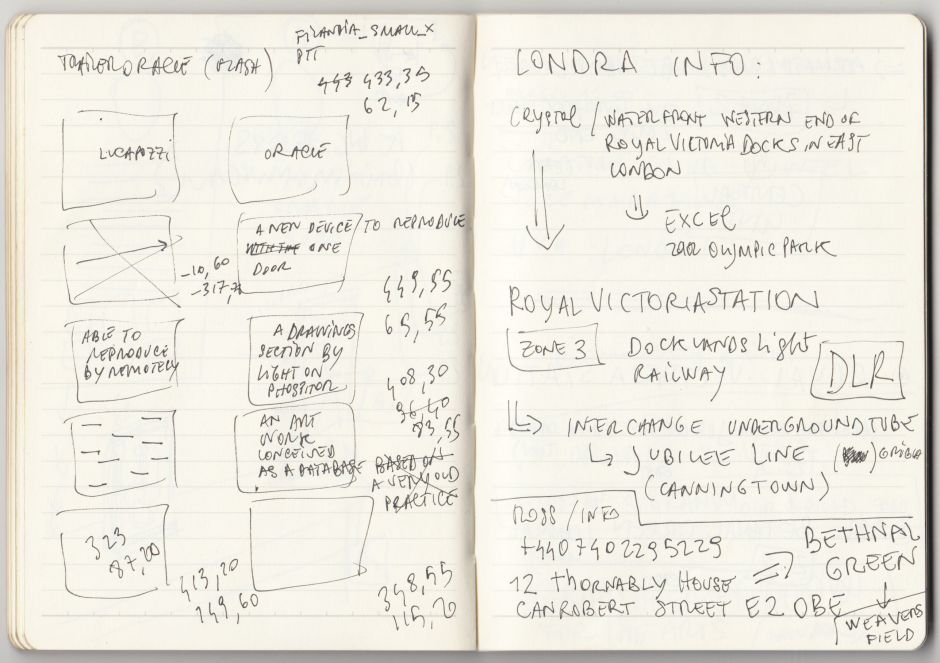 FILANDIA_SMALL_X
PTT
TRAILER ORACLE (FLASH)
443 433,35
62,15
LUCAPOZZI
ORACLE
A NEW DEVICE TO REPRODUCE
WITH THE ONE
DOOR
-10,60
-317,
449,55
65,55
ABLE TO
REPRODUCE
BY REMOTELY
A DRAWINGS
SECTION BY
LIGHT ON
408,30
96,40
83,55
AN ART
WORK
CONCEIVED
AS A DATABASE BASED ON
A VERY OLD
PRACTICE
323
87,20
413,20
149,60
348,55
115,20
LONDRA INFO:
CRYSTAL / WATERFRONT WESTERN END OF
ROYAL VICTORIA DOCKS IN EAST
LONDON
EXCEL
OLYMPIC PARK
ROYAL VICTORIA STATION
ZONE 3
DOCKLANDS Light
RAILWAY
DLR
INTERCHANGE UNDERGROUND TUBE
JUBILEE LINE
(CANNINGTOWN)
ROSS / INFO
+4407402295229
12 Thornably House
CANROBERT STREET E2 0BE
BETHNAL
GREEN
WEAVERS
FIELD